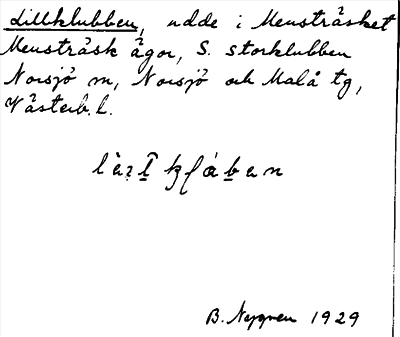 Lillklubben, udde i Mensträsket
Mensträsk ägor, S. storklubben
Norsjö sn, Norsjö och Malå tg,
Västerb. l.
B. Nygren 1929